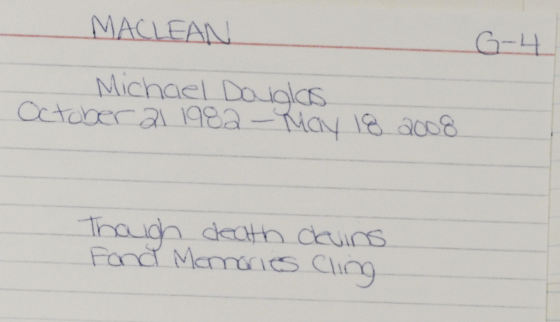 MACLEAN
G-4
Michael Douglas
October 21 1982 - May 18 2008
Though death
Fond Memories Cling